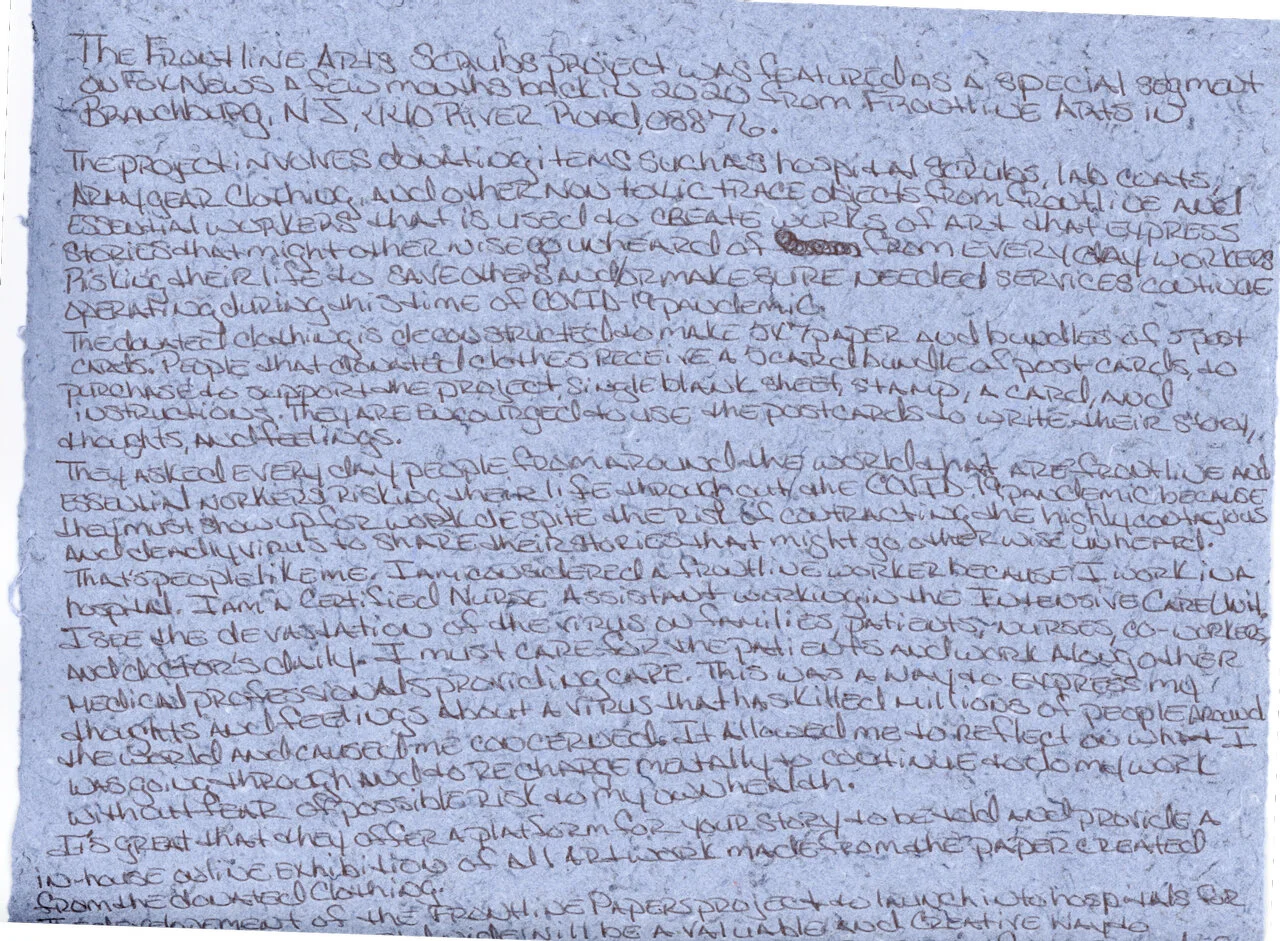 The Frontline Arts Scrubs project was featured as a special segment
on Fox News a few months back in 2020 from Frontline Arts in
Branchburg, NJ, 440 River Road, 08876.
The project involves donating items such as hospital scrubs, lab coats,
Army gear clothing, and other non toxic trace objects from frontline and
essential workers that is used to create works of art that express
stories that might otherwise go unheard of from every day workers
risking their life to save others and/or make sure needed services continue
operating during this time of COVID-19 pandemic.
The donated clothing is deconstructed to make 5x7 paper and bundles of 5 post
cards. People that donated clothes receive a 5 card bundle of post cards, to
purchase to support the project, single blank sheet, stamp, a card, and
instructions. They are encourged to use the postcards to write their story,
thoughts, and feelings.
They asked every day people from around the world that are frontline and
essential workers risking their life throughout the COVID-19 pandemic because
they must show up for work despite the risk of contracting the highly contagious
and deadly virus to share their stories that might go otherwise unheard.
That's people like me. I am considered a frontline worker because I work in a
hospital. I am a Certified Nurse Assistant working in the Intensive Care Unit.
I see the devastation of the virus on families, patients, nurses, co-workers,
and doctor's daily. I must care for the patients and work along other
medical professionals providing care. This was a way to express my
thoughts and feelings about a virus that has killed millions of people around
the world and caused me concerned. It allowed me to reflect on what I
was going through and to recharge mentally to continue to do my work
without fear of possible risk to my own health.
It's great that they offer a platform for your story to be told and provide a
in-house online exhibition of all artwork made from the paper created
from the donated clothing.
of the Frontline Papers project to launch into hospitals for
will be a valuable and creative way to